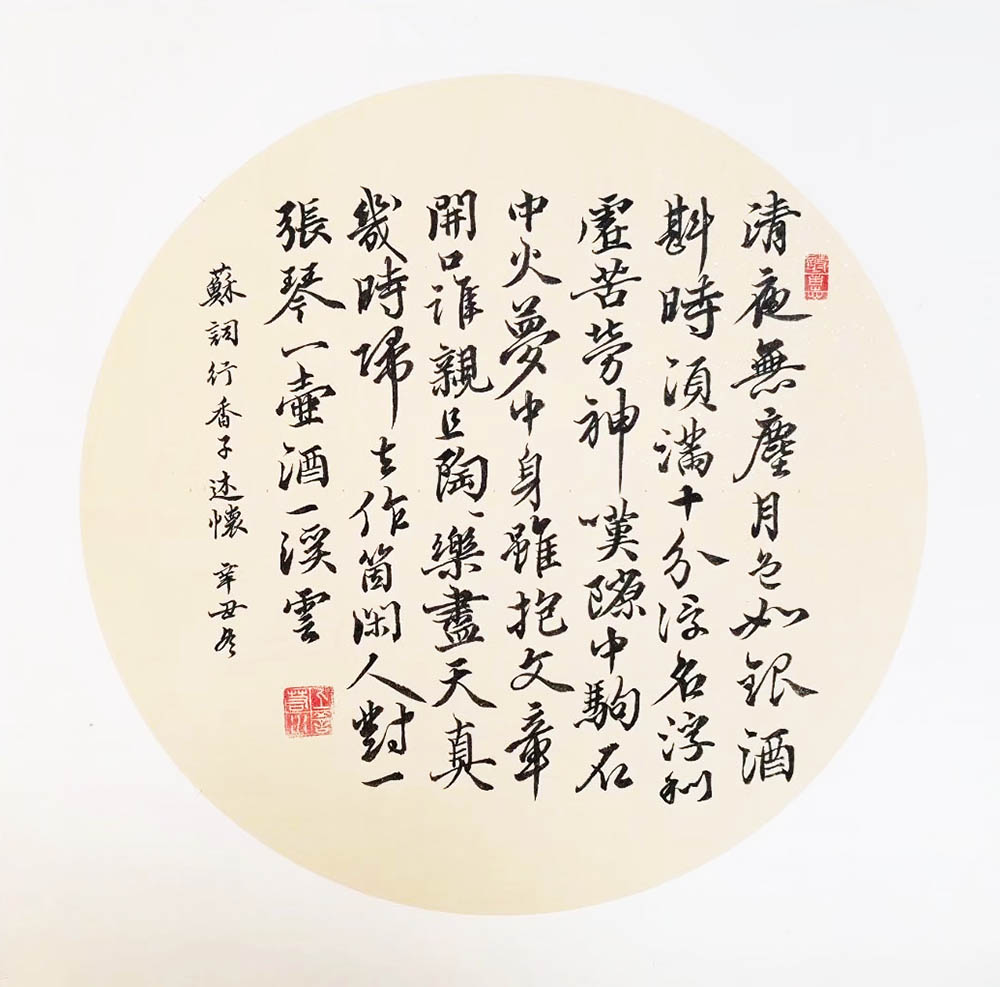 清夜無塵月色如銀酒
斟時須滿十分浮名浮利
虛苦勞神嘆隙中駒石
中火夢中身雖抱文章
開口誰親且陶陶樂盡天真
幾時歸去作箇閑人對一
張琴一壺酒一溪雲
蘇詞行香子述懷 辛丑冬